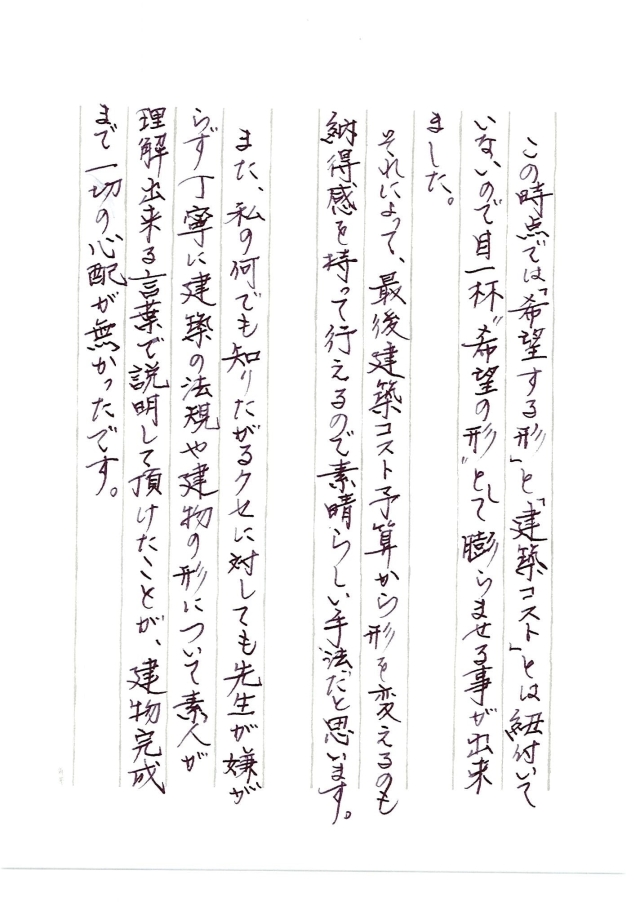 この時点では「希望する形」と「建築コスト」とは紐付いて
いないので目一杯〝希望の形〟として膨らませる事が出来
ました。
それによって、最後建築コスト予算から形を変えるのも
納得感を持って行えるので素晴らしい手法だと思います。
また、私の何でも知りたがるクセに対しても先生が嫌が
らず丁寧に建築の法規や建物の形について素人が
理解出来る言葉で説明して頂けたことが、建物完成
まで一切の心配が無かったです。